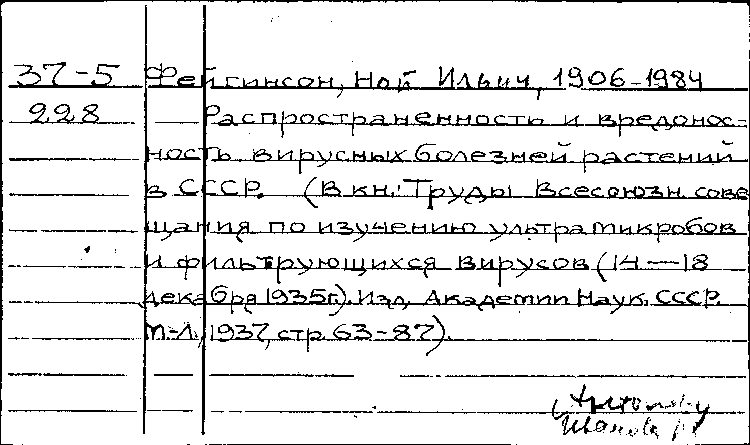 37-5 Фейгинсон, Ной Ильич, 1906-1984
228 Распространенность и вредонос-
ность вирусных болезней растений
в СССР. (В кн.: Труды Всесоюзн. сове
щания по изучению ультрамикробов
и фильтрующихся вирусов (14—18
декабря 1935г.). Изд. Академии Наук СССР.
М.-Л., 1937, стр. 63-87).